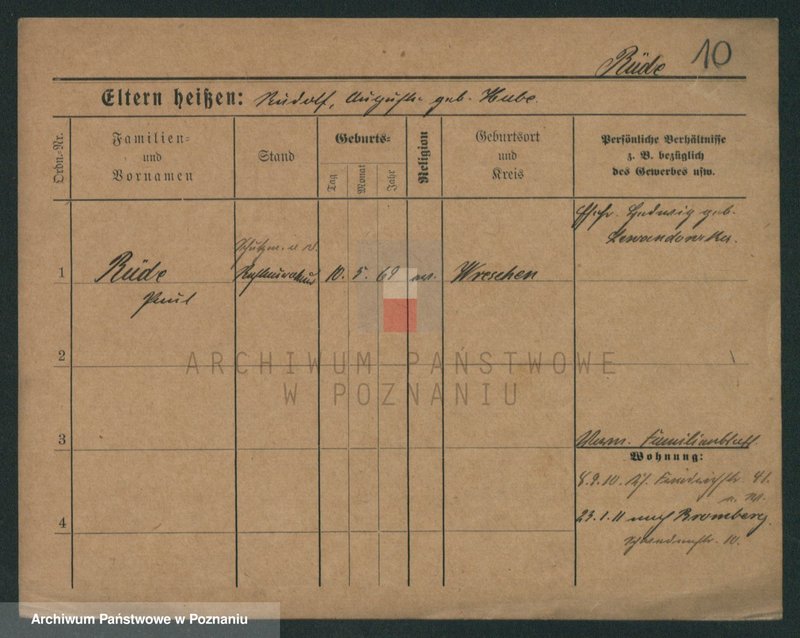 Rüde 10
Eltern heißen: Rudolf, Auguste geb. Hube
Ordn.-Nr.
Familien-
und
Vornamen
Stand
Geburts-
Tag
Monat
Jahr
Religion
Geburtsort
und
Kreis
Persönliche Verhältnisse
z. B. bezüglich
des Gewerbes usw.
Ehefr. Hedwig geb.
Lewandowska.
1 Rüde 10. 5. 69 Wreschen
Paul
2
ARCHIWUM PAŃSTWOWE
W POZNANIU
3
Verm. Familienblatt
Wohnung:
Friedrichstr. 41.
4 23.1.11 nach Bromberg
10.
Archiwum Państwowe w Poznaniu